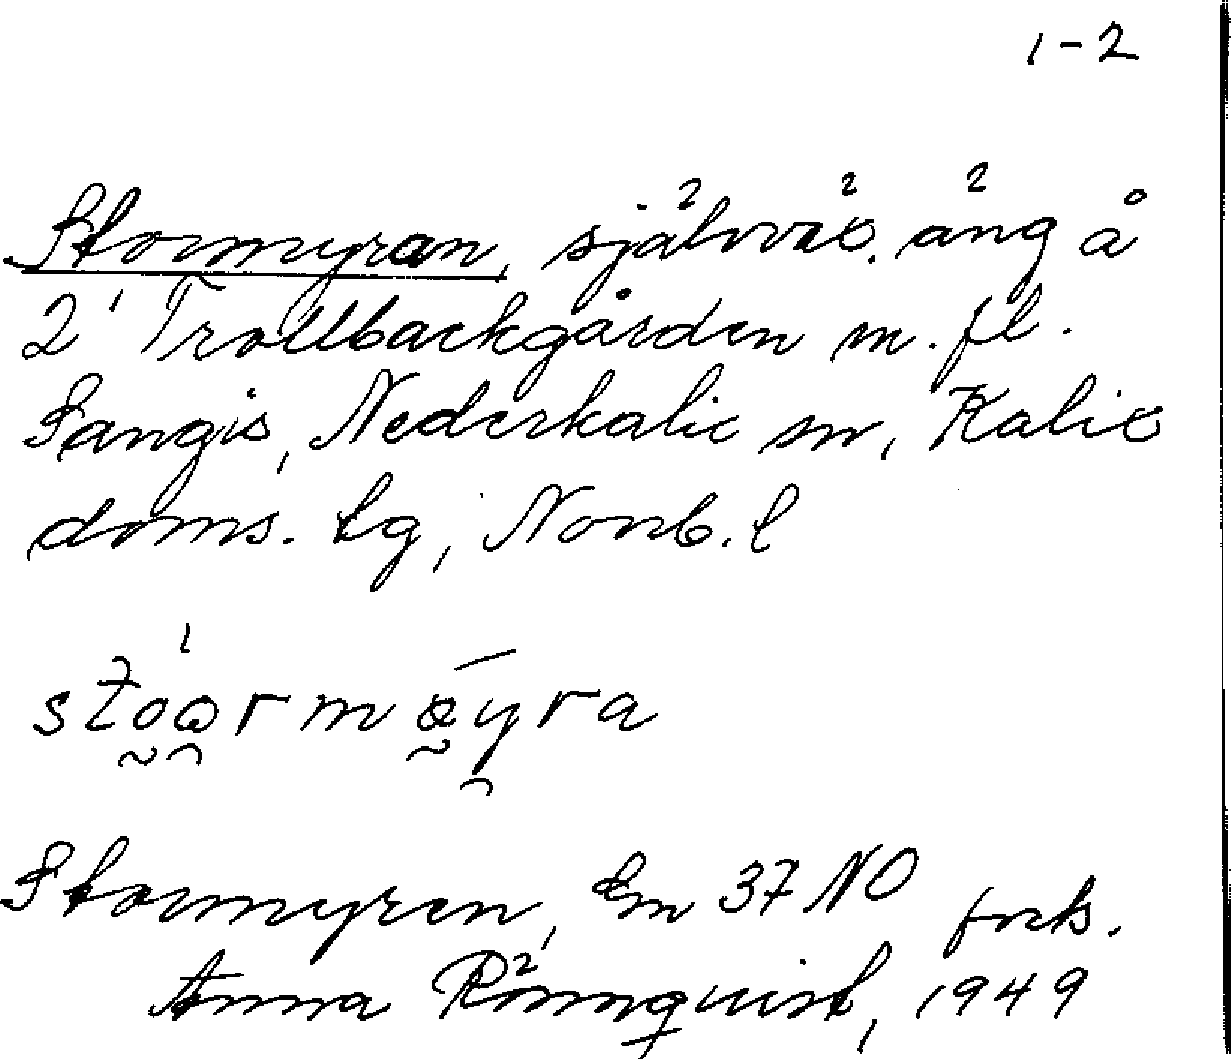 1-2
Stormyran, självväx. äng å
2¹ Trollbackgården m. fl.
Sangis, Nederkalix sn, Kalix
doms. tg, Norrb. l
stoårmøyra
Stormyren, Gn 37 NO fnk.
Anna Rönnquist, 1949